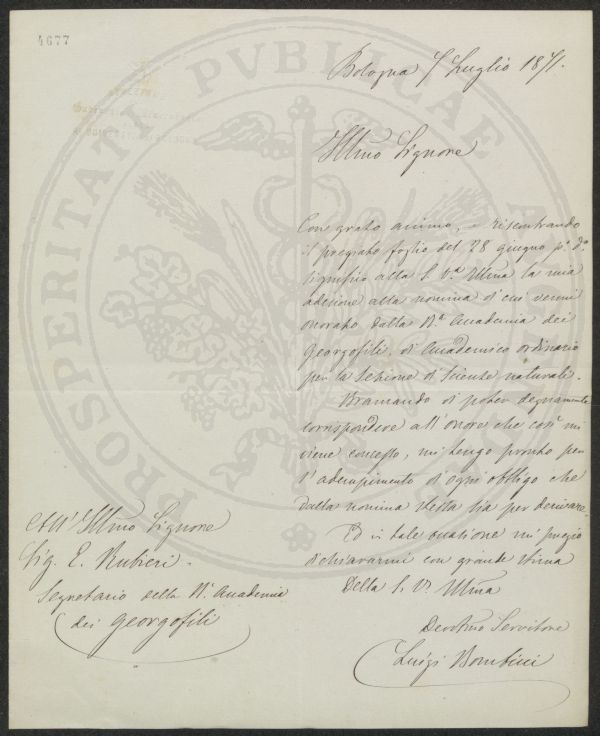 4677
PROSPERITATI PVBLICAE
Bologna 7 Luglio 1871.
Illmo Signore
Con grato animo, riscontrando
il pregiato foglio del 28 giugno p.º d.º
significo alla S. V.ª Illma la mia
adesione alla nomina di cui venni
onorato dalla R.ª Accademia dei
Georgofili, di Accademico ordinario
per la Sezione di Scienze naturali.
Bramando di poter degnamente
corrispondere all'onore che così mi
viene concesso, mi tengo pronto per
l'adempimento di ogni obbligo che
dalla nomina stessa sia per derivare.
Ed in tale occasione mi pregio
dichiararmi con grande stima
Della S. V. Illma
Devotmo Servitore
Luigi Bombicci
All' Illmo Signore
Sig. E. Rubieri.
Segretario della R. Accademia
dei Georgofili